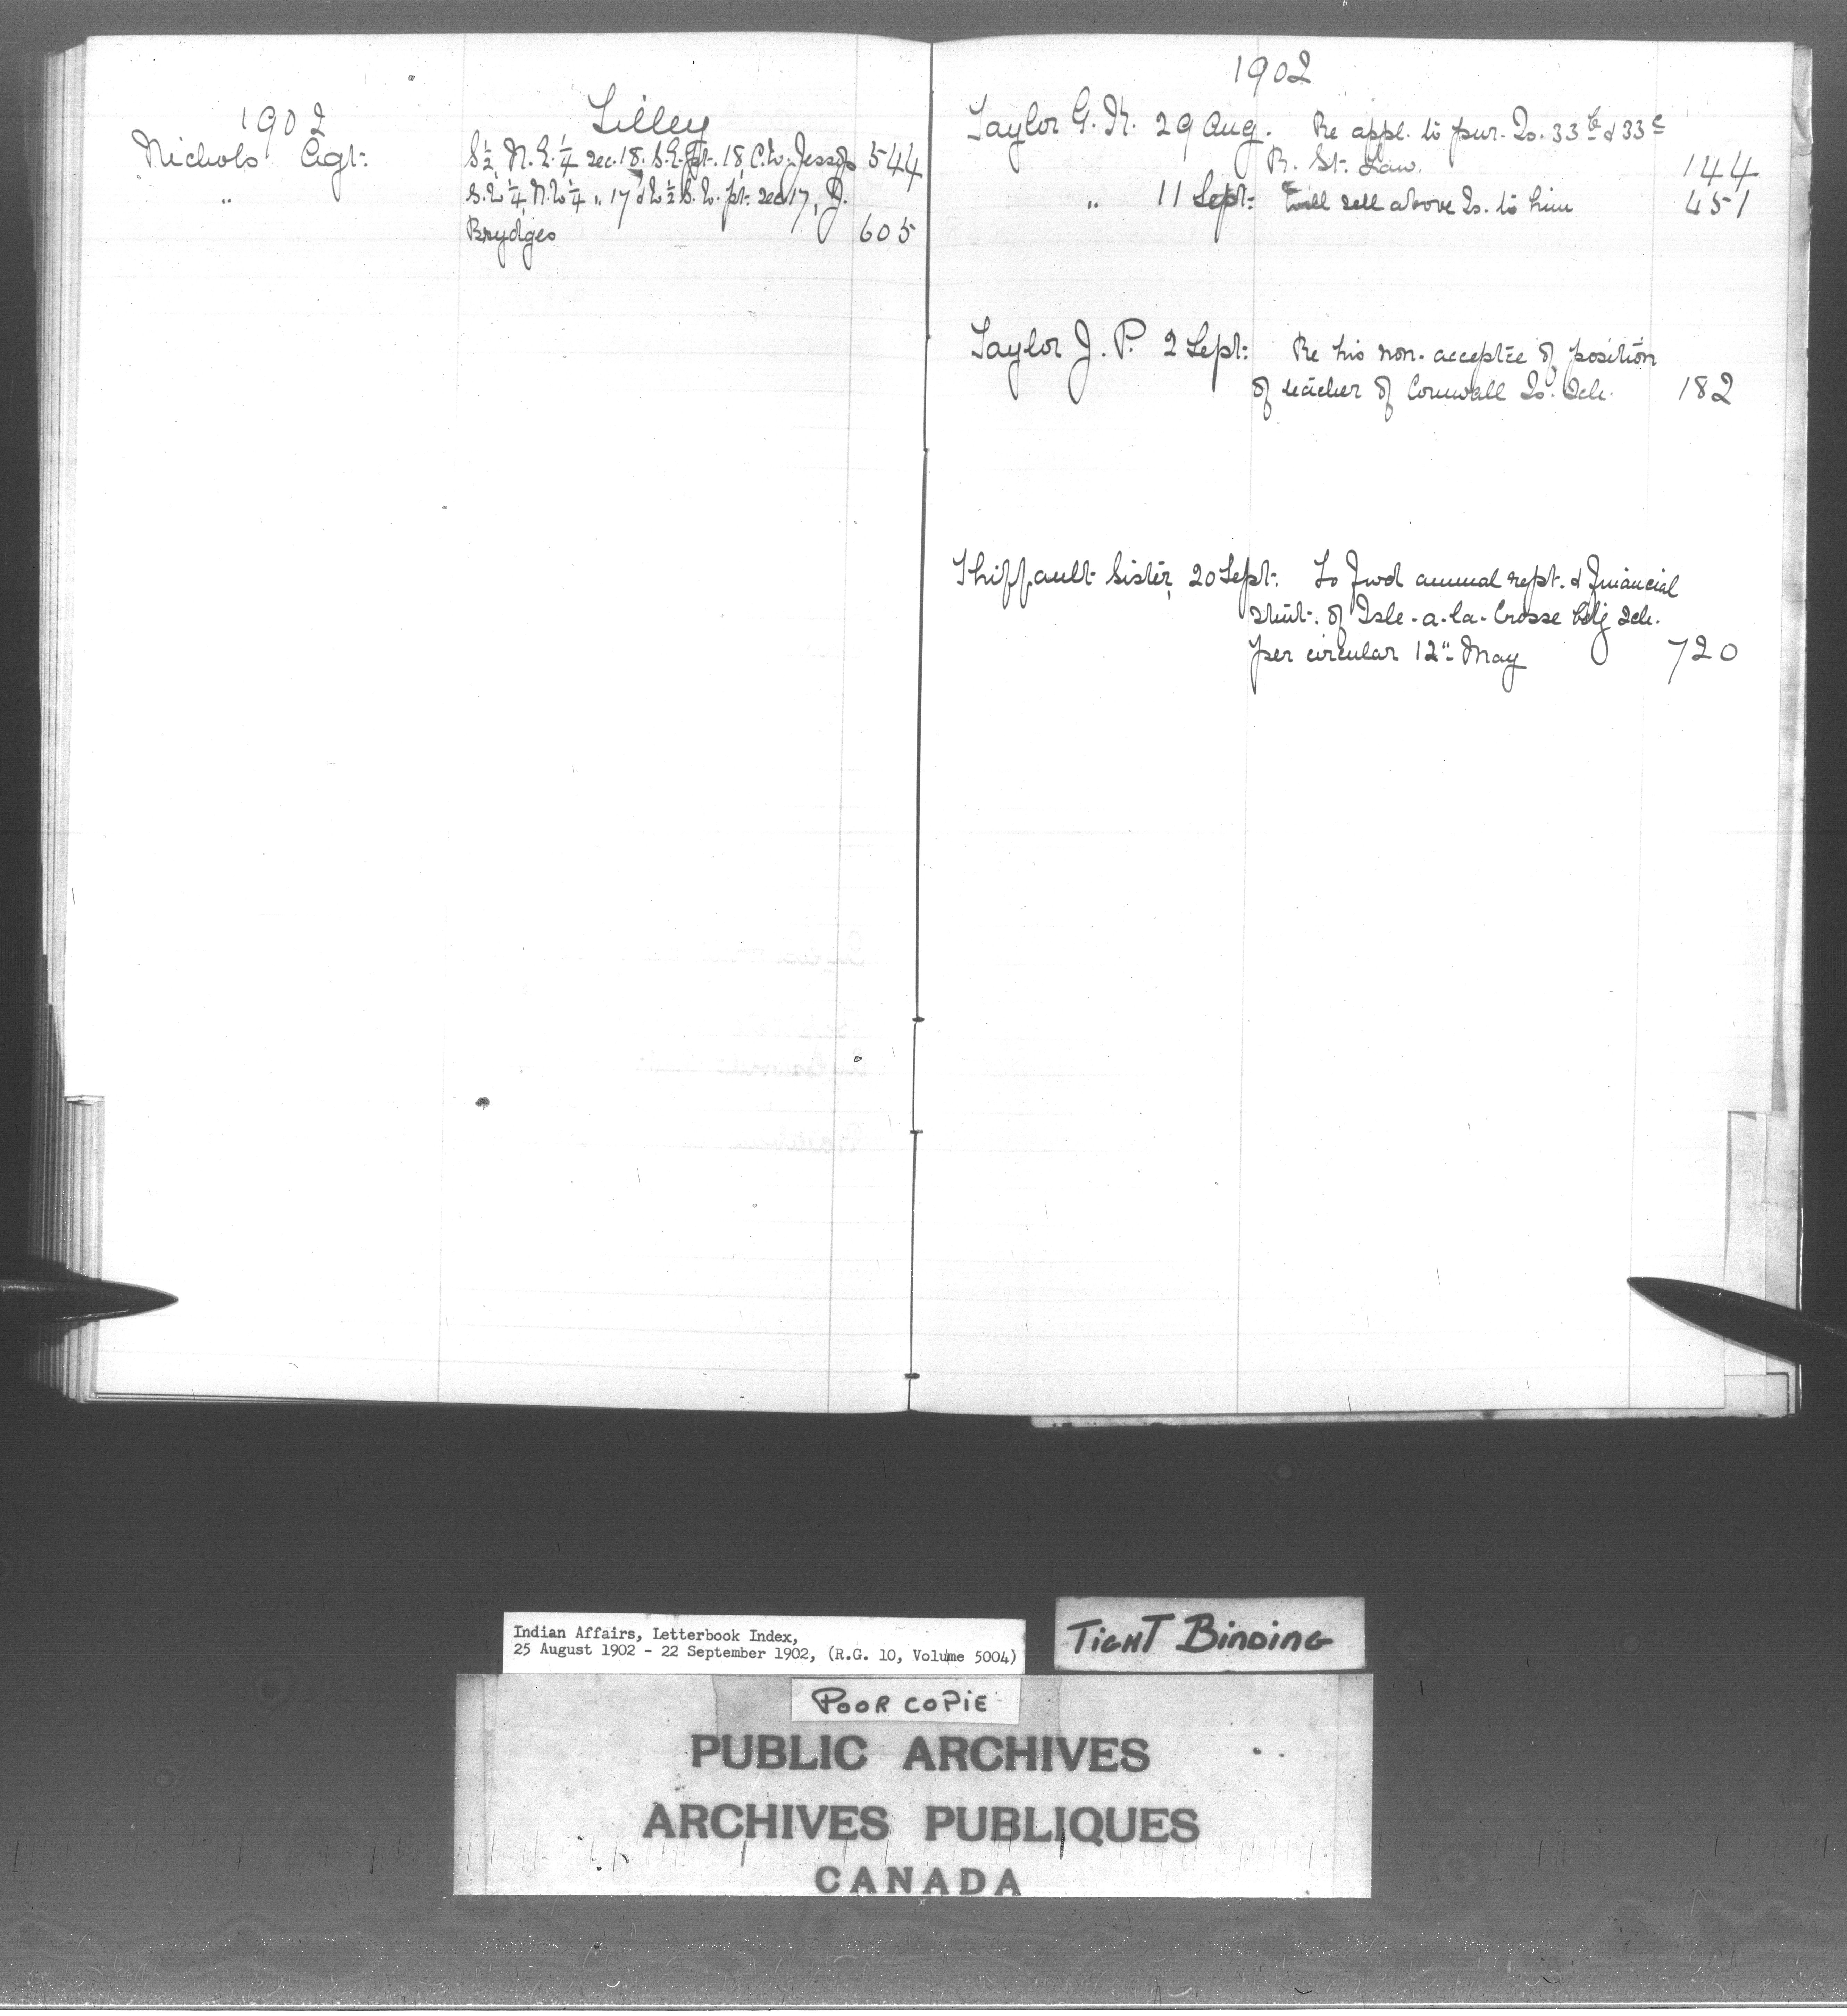 1902
Lilley
Nichols Agt:
S ½ N. E. ¼ sec. 18. S. E. pt. 18, C. W. Jessop 544
" S. W ¼ N. W ¼ " 17 & W ½ S. W. pt. sec 17, J.
Brydges 605
1902
Taylor G. R. 29 Aug. Re appl. to pur. Is. 33 b & 33 c
R. St. Law. 144
" 11 Sept: Will sell above Is. to him 451
Taylor J. P. 2 Sept: Re his non-acceptce of position
of teacher of Cornwall Is. Sch. 182
Thiffault Sister, 20 Sept. To fwd annual rept. & financial
stmt. of Isle-a-la-Crosse Bdg Sch.
per circular 12" May 720
Indian Affairs, Letterbook Index,
25 August 1902 - 22 September 1902, (R.G. 10, Volume 5004)
TIGHT BINDING
POOR COPIE
PUBLIC ARCHIVES
ARCHIVES PUBLIQUES
CANADA